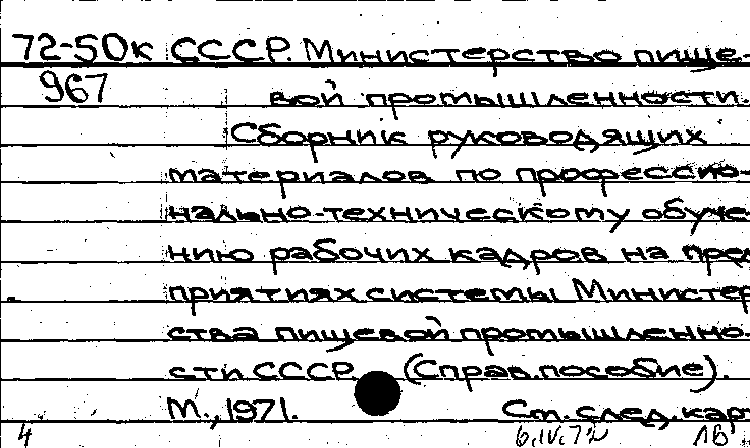 72-50к СССР. Министерство пище-
967 вой промышленности.
Сборник руководящих
материалов по профессио-
нально-техническому обуче-
нию рабочих кадров на пред-
приятиях системы Министер-
ства пищевой промышленно-
сти СССР (Справ. пособие).
М., 1971. См. след. кар
4 6.IV.72 1Б